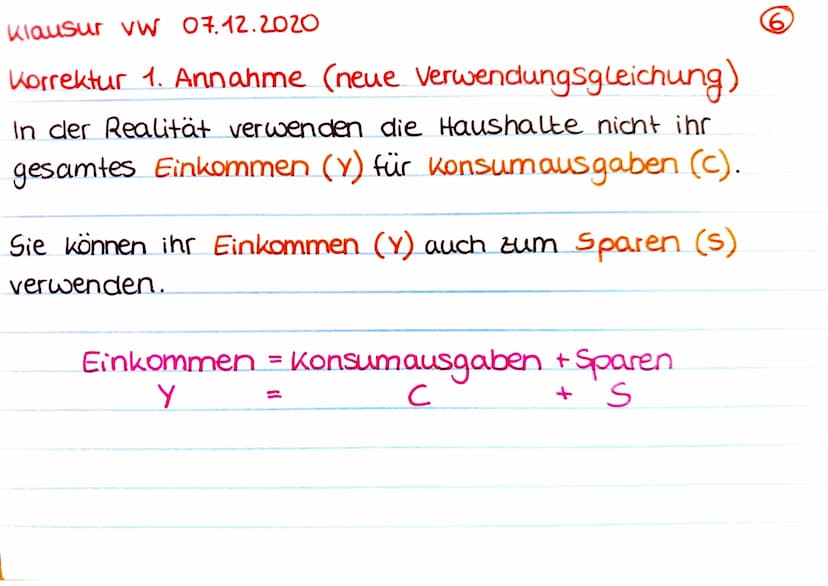 Klausur VW 07.12.2020 6
Korrektur 1. Annahme (neue Verwendungsgleichung)
In der Realität verwenden die Haushalte nicht ihr
gesamtes Einkommen (Y) für Konsumausgaben (C).
Sie können ihr Einkommen (Y) auch zum Sparen (S)
verwenden.
Einkommen = Konsumausgaben + Sparen
Y = C + S